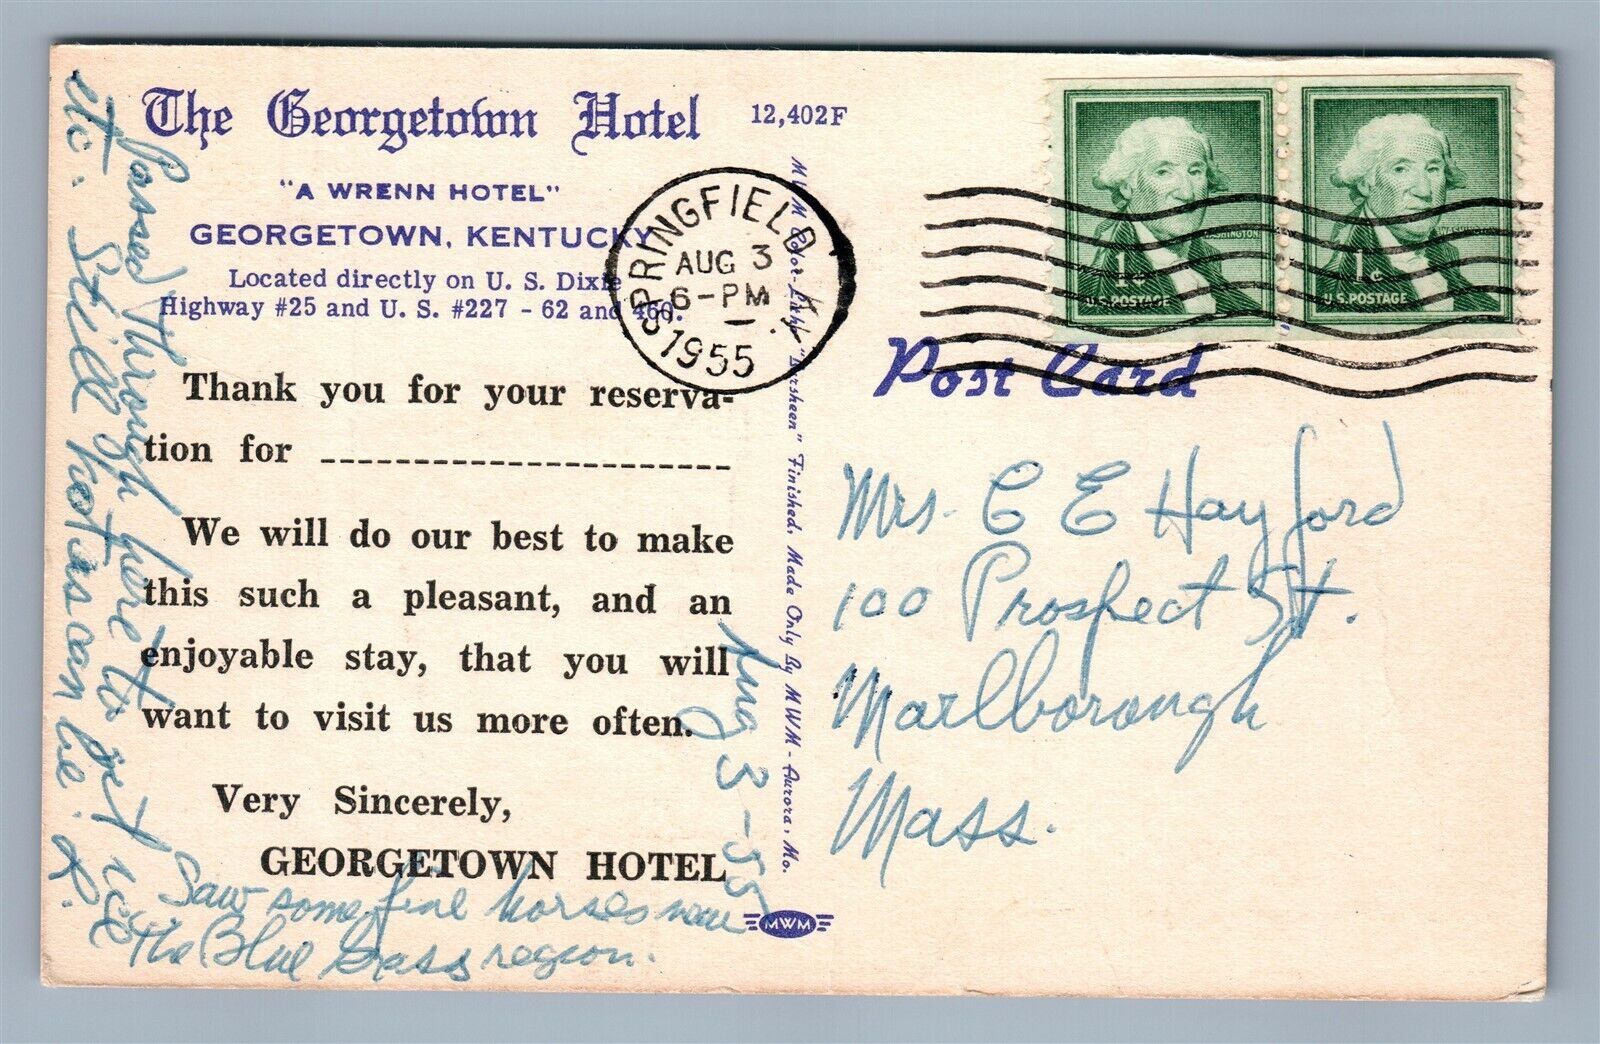 The Georgetown Hotel
12,402F
"A WRENN HOTEL"
GEORGETOWN, KENTUCKY
Located directly on U. S. Dixie
Highway #25 and U. S. #227 - 62 and 460.
Thank you for your reserva-
tion for
We will do our best to make
this such a pleasant, and an
enjoyable stay, that you will
want to visit us more often.
Very Sincerely,
GEORGETOWN HOTEL
Aug 3 - 55
Passed through here to get ice
etc. Still hot as can be. L.
Saw some fine horses near
the Blue Grass region.
MWM Color-Litho "Larsheen" Finished. Made Only By MWM - Aurora, Mo.
MWM
SPRINGFIELD KY.
AUG 3
6-PM
1955
WASHINGTON
1¢
U.S. POSTAGE
WASHINGTON
1¢
U.S. POSTAGE
Post Card
Mrs. C E Hayford
100 Prospect St.
Marlborough
Mass.